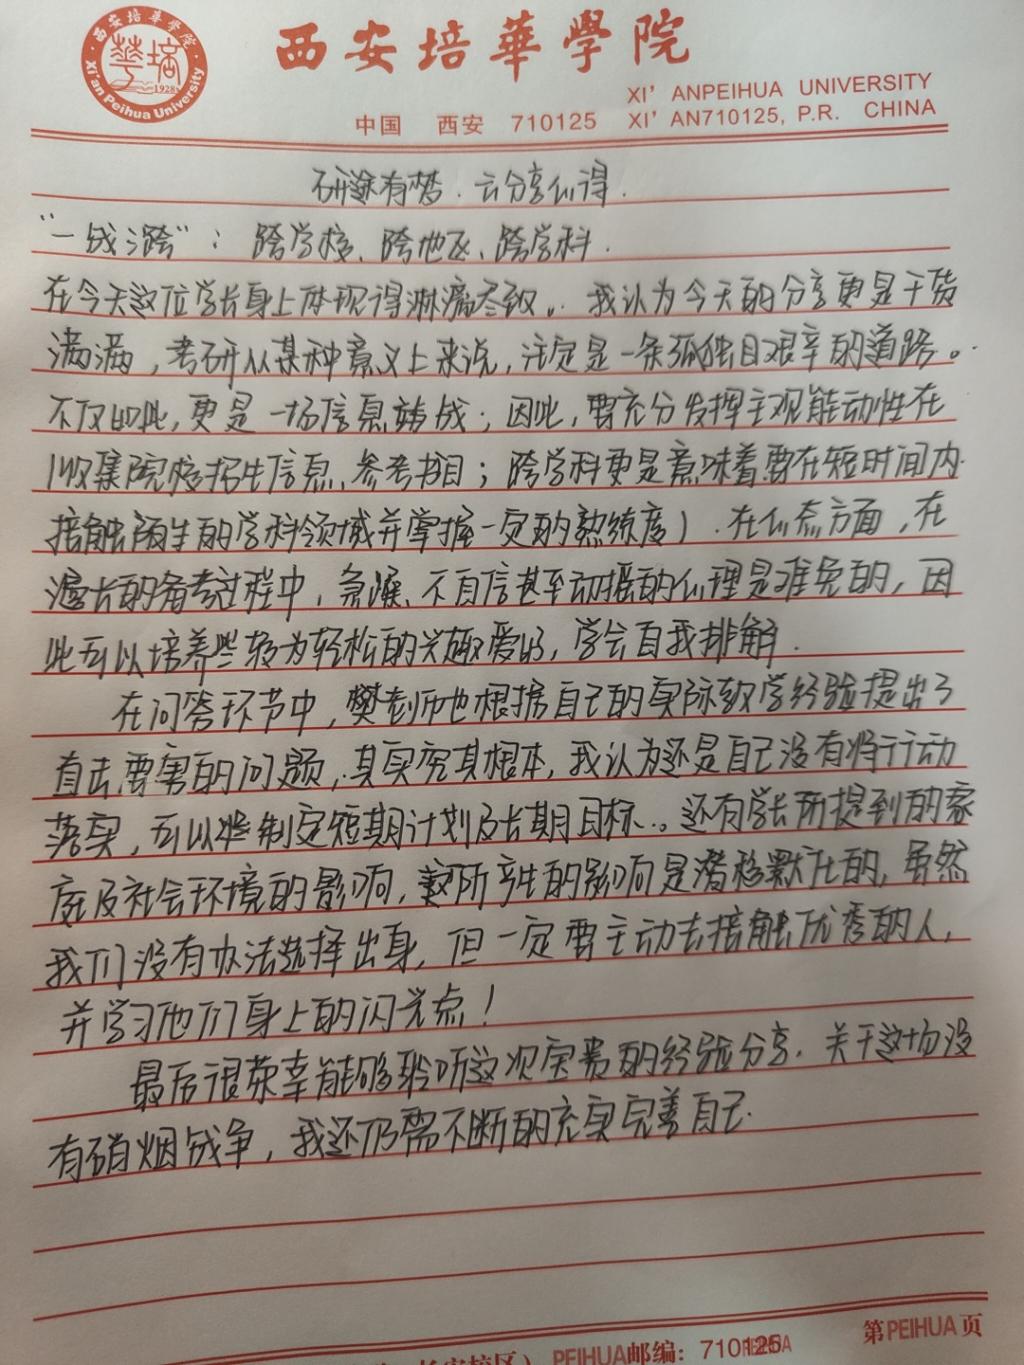 西安培華學院
XI' ANPEIHUA UNIVERSITY
中国 西安 710125 XI' AN710125, P.R. CHINA
西安培華學院
Xi'an Peihua University
1928
研途有梦.云分享心得.
“一战三跨”：跨学校、跨地区、跨学科.
在今天这位学长身上体现得淋漓尽致。. 我认为今天的分享更是干货
满满，考研从某种意义上来说，注定是一条孤独且艰辛的道路。
不仅如此，更是一场信息站战；因此，要充分发挥主观能动性在
（收集院校招生信息、参考书目；跨学科更是意味着要在短时间内
接触陌生的学科领域并掌握一定的熟练度）.在心态方面，在
漫长的备考过程中，急躁、不自信甚至动摇的心理是难免的，因
此可以培养些较为轻松的兴趣爱好，学会自我排解.
在问答环节中，樊老师也根据自己的实际教学经验提出了
直击要害的问题，其实究其根本，我认为还是自己没有将行动
落实，可以 制定短期计划及长期目标.。还有学长所提到的家
庭及社会环境的影响，这所产生的影响是潜移默化的，虽然
我们没有办法选择出身，但一定要主动去接触优秀的人，
并学习他们身上的闪光点！
最后很荣幸能够聆听这次宝贵的经验分享，关于这场没
有硝烟战争，我还仍需不断的充实完善自己.
第PEIHUA页
PEIHUA邮编：710125